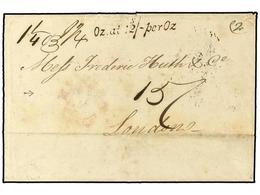 Oz. at 12/- per Oz
Messrs Frederic Huth & Co
15
London